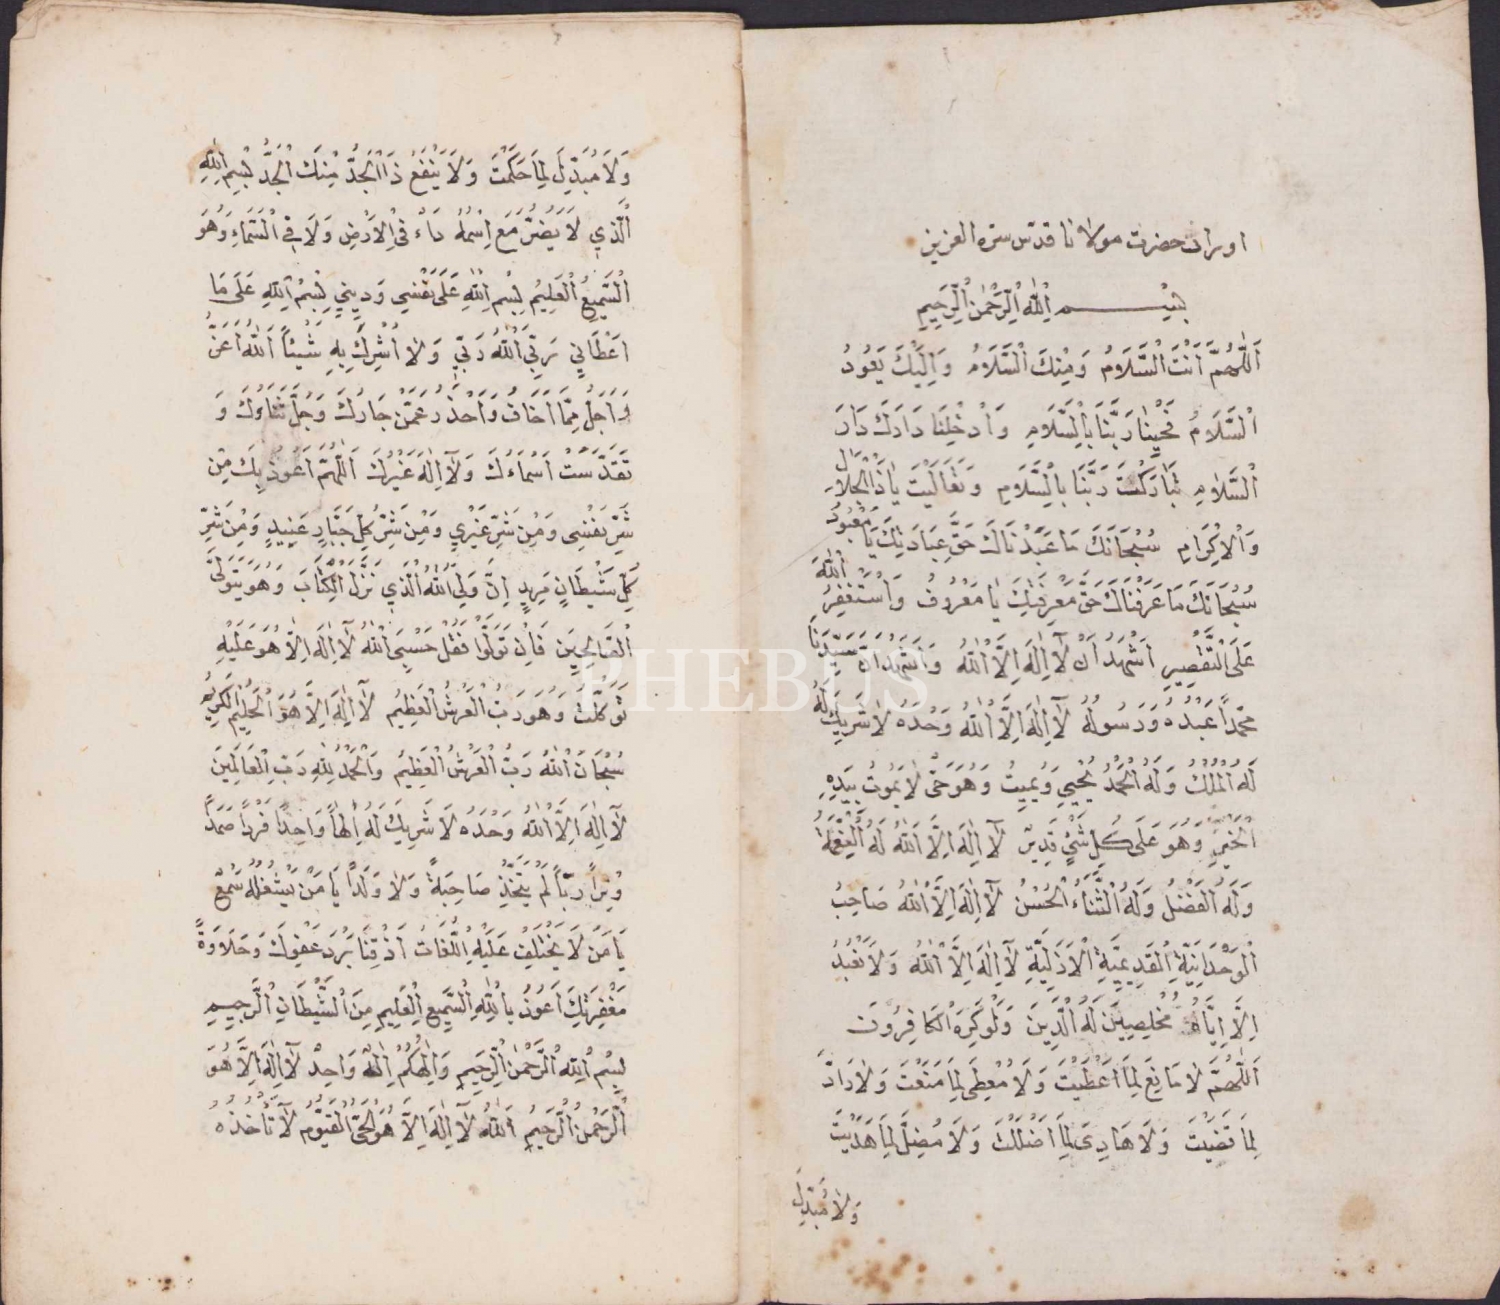 اوراد حضرت مولانا قدس سره العزيز
بسم الله الرحمن الرحيم
اَللّٰهُمَّ اَنْتَ السَّلَامُ وَمِنْكَ السَّلَامُ وَاِلَيْكَ يَعُودُ
السَّلَامُ فَحَيِّنَا رَبَّنَا بِالسَّلَامِ وَاَدْخِلْنَا دَارَكَ دَارَ
السَّلَامِ تَبَارَكْتَ رَبَّنَا بِالسَّلَامِ وَتَعَالَيْتَ يَا ذَا الْجَلَالِ
وَالْاِكْرَامِ سُبْحَانَكَ مَا عَبَدْنَاكَ حَقَّ عِبَادَتِكَ يَا مَعْبُودُ
سُبْحَانَكَ مَا عَرَفْنَاكَ حَقَّ مَعْرِفَتِكَ يَا مَعْرُوفُ وَاَسْتَغْفِرُ اللهَ
عَلَى التَّقْصِيرِ اَشْهَدُ اَنْ لَا اِلٰهَ اِلَّا اللهُ وَاَشْهَدُ اَنَّ سَيِّدَنَا
مُحَمَّداً عَبْدُهُ وَرَسُولُهُ لَا اِلٰهَ اِلَّا اللهُ وَحْدَهُ لَا شَرِيكَ لَهُ
لَهُ الْمُلْكُ وَلَهُ الْحَمْدُ يُحْيِي وَيُمِيتُ وَهُوَ حَيٌّ لَا يَمُوتُ بِيَدِهِ
الْخَيْرُ وَهُوَ عَلَى كُلِّ شَيْءٍ قَدِيرٌ لَا اِلٰهَ اِلَّا اللهُ لَهُ النِّعْمَةُ
وَلَهُ الْفَضْلُ وَلَهُ الثَّنَاءُ الْحُسْنُ لَا اِلٰهَ اِلَّا اللهُ صَاحِبُ
الْوَحْدَانِيَّةِ الْقَدِيمِيَّةِ الْاَزَلِيَّةِ لَا اِلٰهَ اِلَّا اللهُ وَلَا نَعْبُدُ
اِلَّا اِيَّاهُ مُخْلِصِينَ لَهُ الدِّينَ وَلَوْ كَرِهَ الْكَافِرُونَ
اَللّٰهُمَّ لَا مَانِعَ لِمَا اَعْطَيْتَ وَلَا مُعْطِيَ لِمَا مَنَعْتَ وَلَا رَادَّ
لِمَا قَضَيْتَ وَلَا هَادِيَ لِمَا اَضْلَلْتَ وَلَا مُضِلَّ لِمَا هَدَيْتَ
وَلَا مُبَدِّلَ
وَلَا مُبَدِّلَ لِمَا حَكَمْتَ وَلَا يَنْفَعُ ذَا الْجَدِّ مِنْكَ الْجَدُّ بِسْمِ اللهِ
الَّذِي لَا يَضُرُّ مَعَ اِسْمِهُ دَاءٌ فِي الْاَرْضِ وَلَا فِي السَّمَاءِ وَهُوَ
السَّمِيعُ الْعَلِيمُ بِسْمِ اللهِ عَلَى نَفْسِي وَدِينِي بِسْمِ اللهِ عَلَى مَا
اَعْطَانِي رَبِّي اَللهُ رَبِّي وَلَا اُشْرِكُ بِهِ شَيْئاً اَللهُ اَعَزُّ
وَاَجَلُّ مِمَّا اَخَافُ وَاَحْذَرُ عَمَّنْ جَارُكَ وَجُلَّ ثَنَاءُكَ وَ
تَقَدَّسَتْ اَسْمَاءُكَ وَلَا اِلٰهَ غَيْرُكَ اَللّٰهُمَّ اَعُوذُ بِكَ مِنْ
شَرِّ نَفْسِي وَمِنْ شَرِّ غَيْرِي وَمِنْ شَرِّ كُلِّ جَبَّارٍ عَنِيدٍ وَمِنْ شَرِّ
كُلِّ شَيْطَانٍ مَرِيدٍ اِنَّ وَلِيَّ اللهُ الَّذِي نَزَّلَ الْكِتَابَ وَهُوَ يَتَوَلَّى
الصَّالِحِينَ فَاِنْ تَوَلَّوْا فَقُلْ حَسْبِيَ اللهُ لَا اِلٰهَ اِلَّا هُوَ عَلَيْهِ
تَوَكَّلْتُ وَهُوَ رَبُّ الْعَرْشِ الْعَظِيمِ لَا اِلٰهَ اِلَّا هُوَ الْحَلِيمُ الْكَرِيمُ
سُبْحَانَ اللهِ رَبُّ الْعَرْشِ الْعَظِيمِ وَالْحَمْدُ لِلّٰهِ رَبِّ الْعَالَمِينَ
لَا اِلٰهَ اِلَّا اللهُ وَحْدَهُ لَا شَرِيكَ لَهُ اِلٰهاً وَاحِداً فَرْداً صَمَداً
وِتْراً رَبّاً لَمْ يَتَّخِذْ صَاحِبَةً وَلَا وَلَداً يَا مَنْ يَشْغَلُهُ سَمْعٌ
يَا مَنْ لَا يَخْتَلِفُ عَلَيْهِ اللُّغَاتُ اَذِقْنَا بَرْدَ عَفْوِكَ وَحَلَاوَةً
مَغْفِرَتِكَ اَعُوذُ بِاللهِ السَّمِيعِ الْعَلِيمِ مِنَ الشَّيْطَانِ الرَّجِيمِ
بِسْمِ اللهِ الرَّحْمٰنِ الرَّحِيمِ وَاِلٰهُكُمْ اِلٰهٌ وَاحِدٌ لَا اِلٰهَ اِلَّا هُوَ
الرَّحْمٰنُ الرَّحِيمُ اَللهُ لَا اِلٰهَ اِلَّا هُوَ الْحَيُّ الْقَيُّومُ لَا تَأْخُذُهُ
PHEBUS